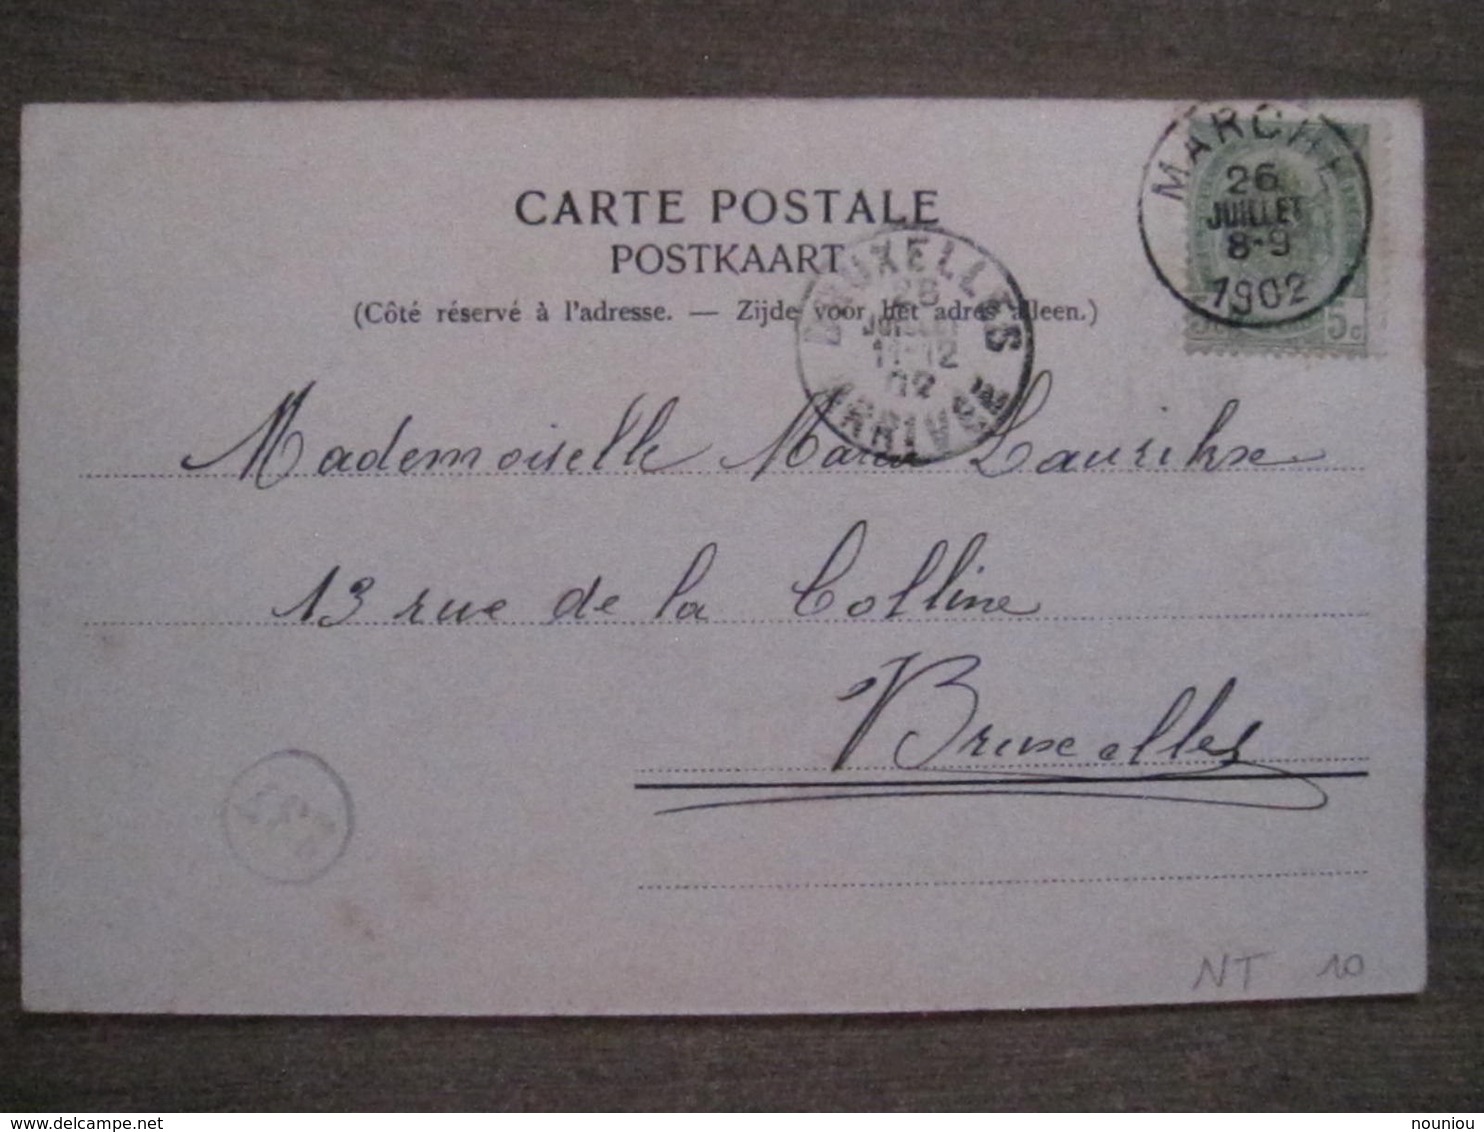 MARCHE
26
JUILLET
8-9
1902
5c 5c
CARTE POSTALE
POSTKAART
(Côté réservé à l'adresse. — Zijde voor het adres alleen.)
BRUXELLES
26
JUILLET
11-12
02
ARRIVÉE
Mademoiselle Maria
13 rue de la Colline
Bruxelles
NT 10
nouniou